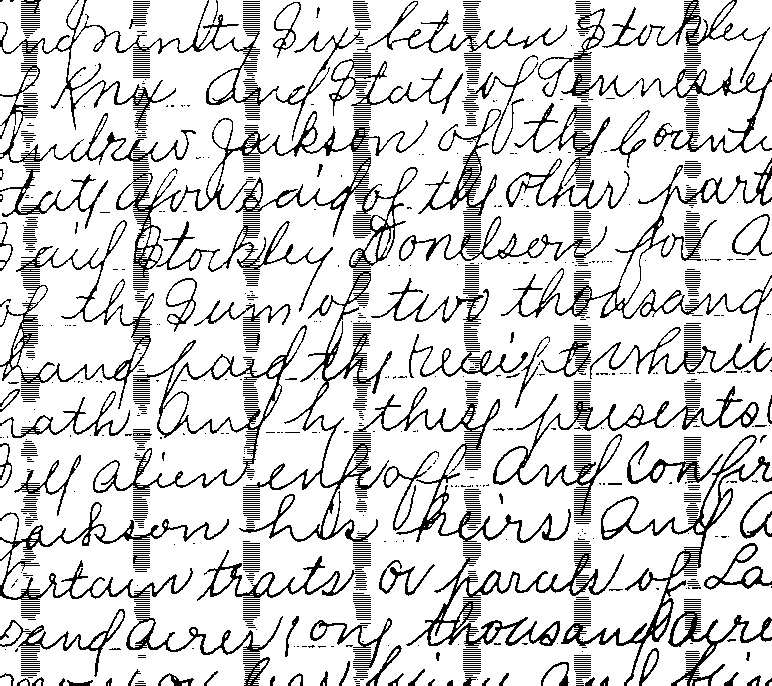 and ninety Six between Stockley
of Knox and State of Tennessey
Andrew Jackson of the Counti
State aforesaid of the other part
Said Stockley Donelson for a
of the Sum of two thousand
hand paid the receipt where
hath and by these presents
Sell alien enfeoff and Confir
Jackson his heirs and a
Certain tracts or parcels of La
sand acres one thousand acre
more or less being and bein